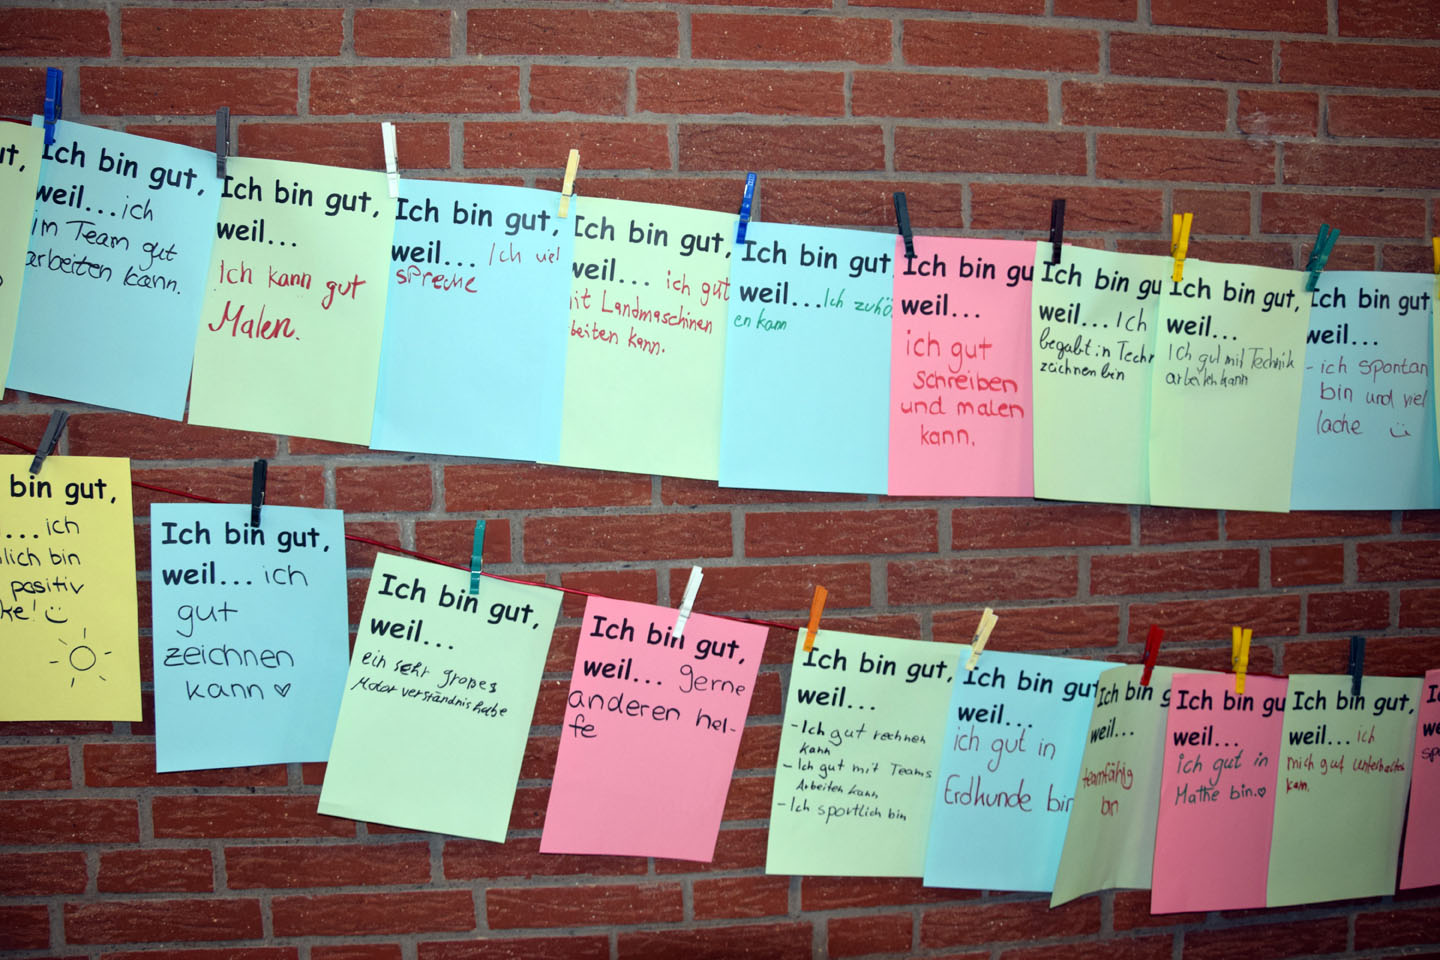 ut,
Ich bin gut,
weil...ich
im Team gut
arbeiten kann.
Ich bin gut,
weil...
Ich kann gut
Malen.
Ich bin gut,
weil... Ich viel
spreche
Ich bin gut,
weil... ich gut
mit Landmaschinen
beiten kann.
Ich bin gut
weil...Ich zuhö
en kann
Ich bin gu
weil...
ich gut
Schreiben
und malen
kann.
Ich bin gu
weil... Ich
begabt in Techn
zeichnen bin
Ich bin gut,
weil...
Ich gut mit Technik
arbeiten kann
Ich bin gut
weil...
- ich spontan
bin und viel
lache
bin gut,
... ich
lich bin
positiv
ke!
Ich bin gut,
weil... ich
gut
zeichnen
kann
Ich bin gut,
weil...
ein sehr großes
Motorverständnis habe
Ich bin gut,
weil... gerne
anderen hel-
fe
Ich bin gut,
weil...
- Ich gut rechnen
kann
- Ich gut mit Teams
Arbeiten kann
- Ich sportlich bin
Ich bin gut
weil...
ich gut in
Erdkunde bin
Ich bin g
weil...
teamfähig
bin
Ich bin gu
weil...
ich gut in
Mathe bin.
Ich bin gut,
weil... ich
mich gut unterhalten
kann.
I
we
sp